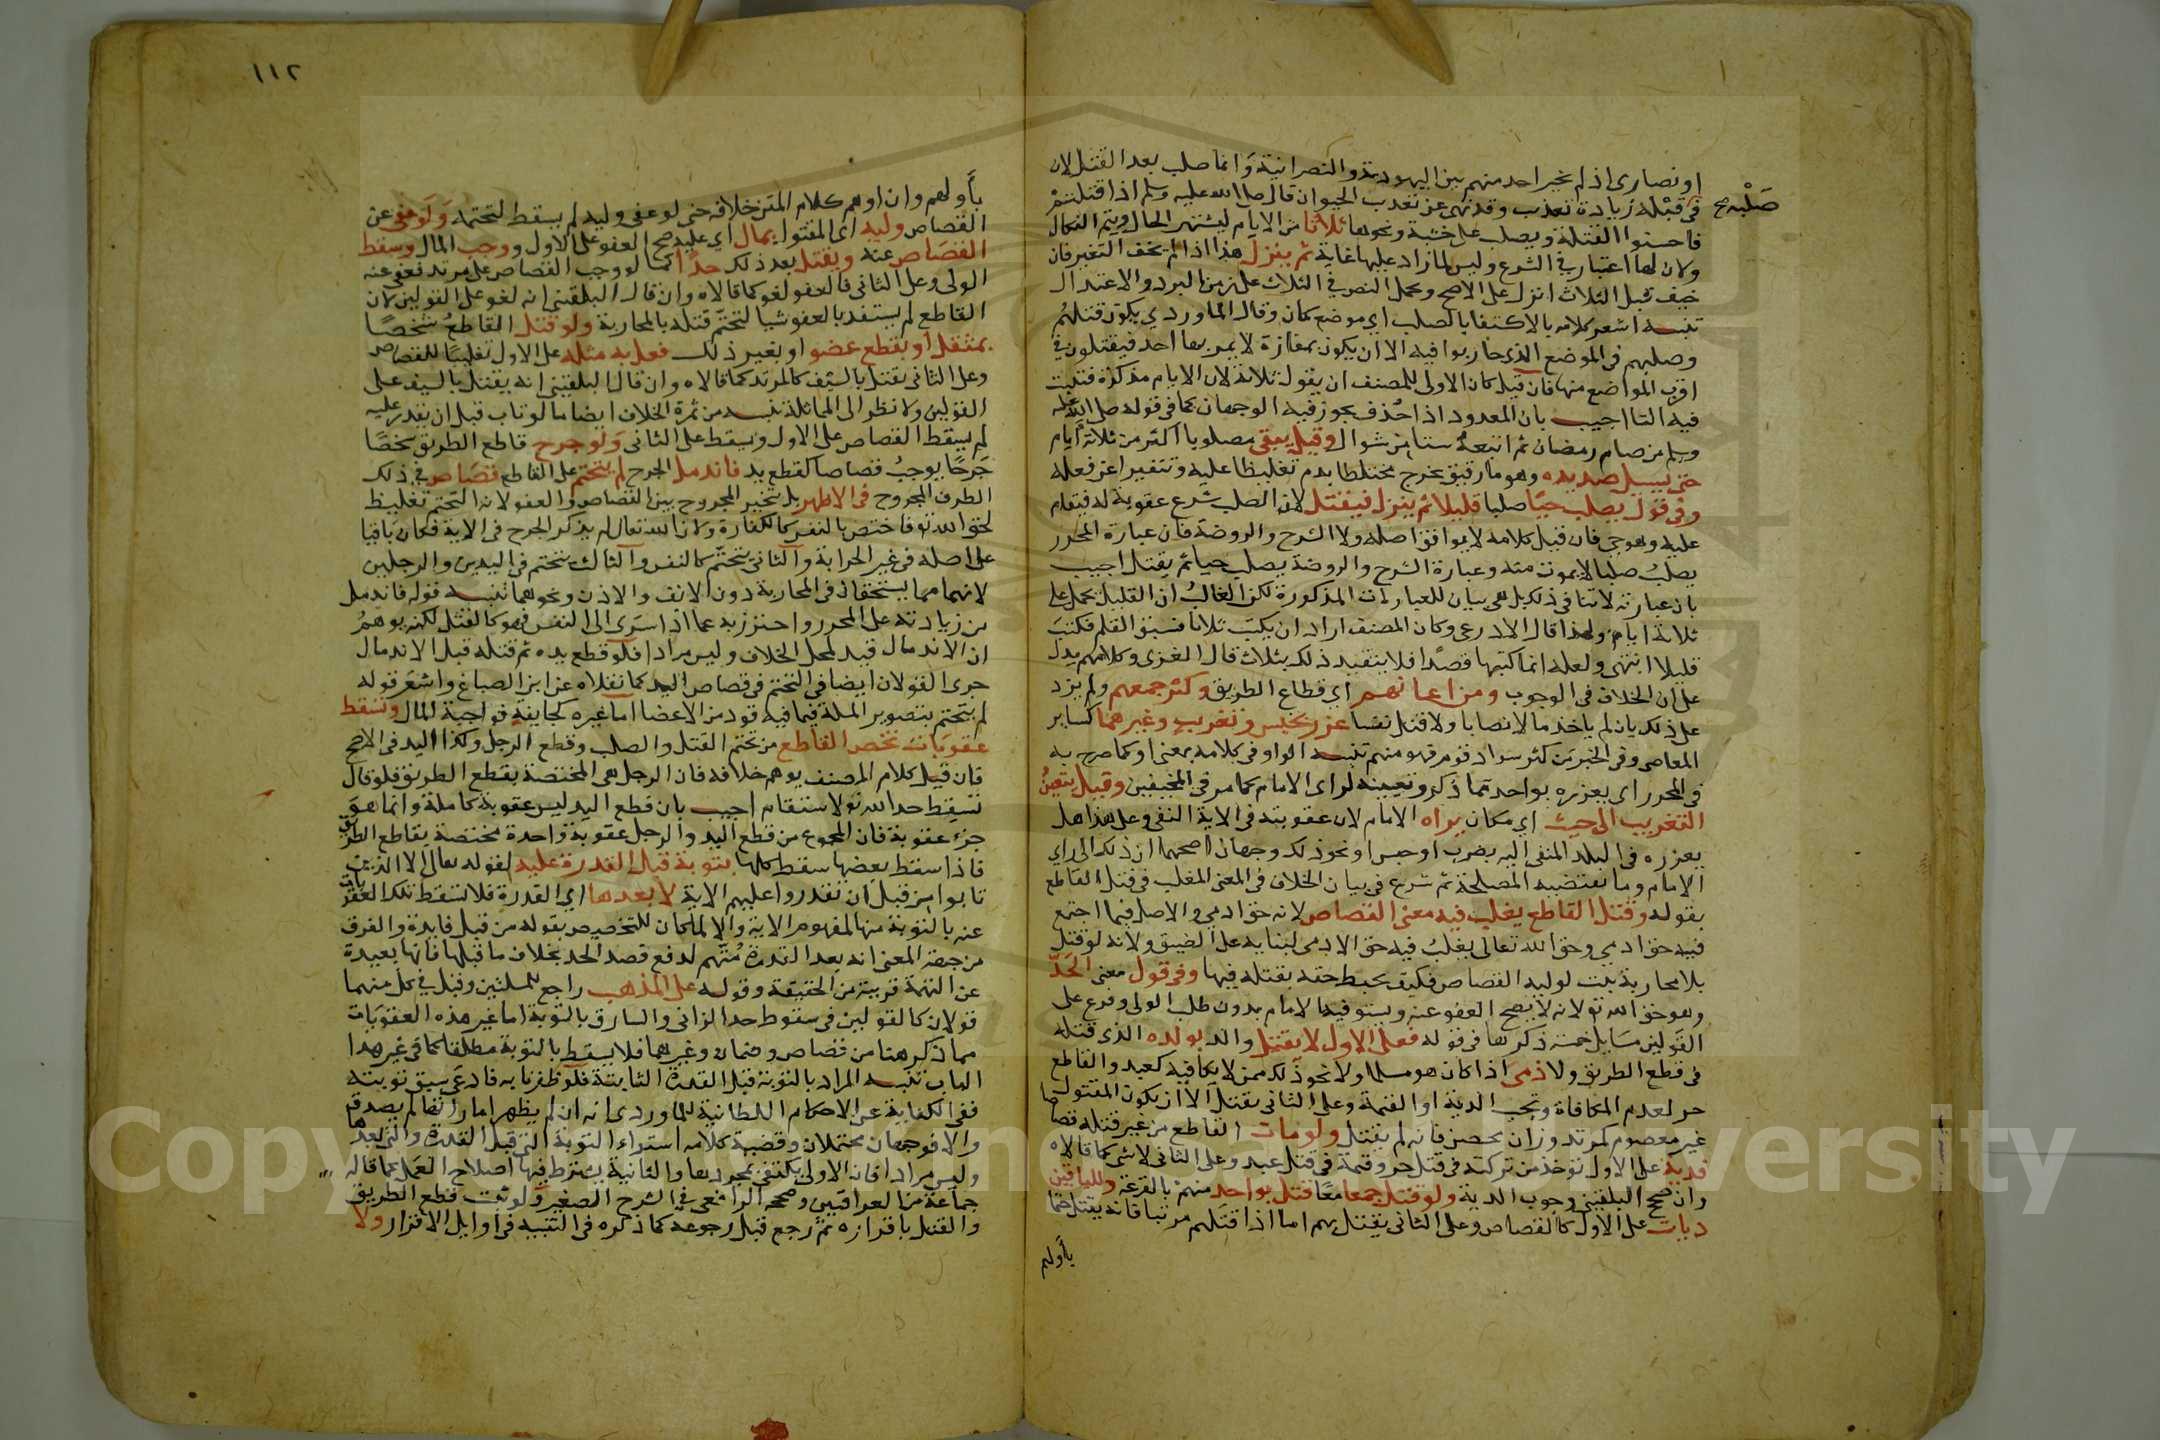 او نصارى اذ لم نجبر احد منهم بين اليهودية والنصرانية وانما صلب بعد القتل لان
صَلْبه صح
في قبله زيادة تعذيب وقد نهى عن تعذيب الحيوان قال صلى الله عليه وسلم اذا قتلتم
فاحسنوا القتلة ويصلب على خشبة ونحوها ثلاثا من الايام ليشتهر الحال ويتم النكال
ولان لها اعتبار في الشرع وليس لما زاد عليها غاية ثم ينزل هذا اذا لم يخف التغير فان
خيف قبل الثلاث انزل على الاصح وحمل النص في الثلاث على زمن البرد والاعتدال
تنبيه اشعر كلامه بالاكتفا بالصلب اي موضع كان وقال الماوردي يكون قتلهم
وصلبهم في الموضع الذي حاربوا فيه الا ان يكون بمفازة لا يمر بها احد فيقتلون في
اقرب المواضع منها فان قيل كان الاولى للمصنف ان يقول ثلاثة لان الايام مذكرة فتثبت
فيه التا اجيب بان المعدود اذا حُذف يجوز فيه الوجهان كما في قوله صلى الله عليه
وسلم من صام رمضان ثم اتبعهُ ستا من شوال وقيل يبقى مصلوبا اكثر من ثلاثة ايام
حتى يسيل صديده وهو ما رقيق يخرج مختلطا بدم تغليظا عليه وتنفيرا عن فعله
وفي قول يصلب حيا صلبا قليلا ثم ينزل فيقتل لان الصلب شرع عقوبة له فيقام
عليه وهو حي فان قيل كلامه لا يوافق اصله ولا الشرح والروضة فان عبارة المحرر
يصلبُ صلبا لا يموت منه وعبارة الشرح والروضة يصلب حيا ثم يقتل اجيب
بان عبارته لا تنافي ذلك بل هي بيان للعبارات المذكورة لكن الغالبُ ان القليل يحمل على
ثلاثة ايام ولهذا قال الاذرعي وكان المصنف اراد ان يكتب ثلاثا فسبق القلم فكتب
قليلا انتهى ولعله انما كتبها قصدًا فلا يتقيد ذلك بثلاث قال الغزي وكلامهم يدل
على ان الخلاف في الوجوب ومن اعانهم اي قطاع الطريق وكثر جمعهم ولم يزد
على ذلك بان لم ياخذ مالا نصابا ولا قتل نفسا عزر بحبس وتغريب وغيرهما كساير
المعاصي وفي الخبر من كثر سواد قوم فهو منهم تنبيه الواو في كلامه بمعنى او كما صرح به
في المحرر اي يعزره بواحد مما ذكر وتعيينه لراى الامام كما مر في المخيفين وقيل يتعينُ
التغريب الى حيث اي مكان يراه الامام لان عقوبته في الاية النفي وعلى هذا هل
يعزره في البلد المنفي اليه بضرب او حبس او نحو ذلك وجهان اصحهما ان ذلك الى راي
الامام وما تقتضيه المصلحة ثم شرع في بيان الخلاف في المعنى المغلب في قتل القاطع
بقوله وقتل القاطع يغلب فيه معنى القصاص لانه حق ادمي والاصل فيما اجتمع
فيه حق ادمي وحق الله تعالى يغلبُ فيه حق الادمي لبنايه على الضيق ولانه لو قتل
بلا محاربة ثبت لوليه القصاص فكيف يحبط حقه بقتله فيها وفي قول معنى الحَدّ
وهو حق الله تو لانه لا يصح العفو عنه ويستوفيه الامام بدون طلب الولي وفرع على
القولين مسايل خمسة ذكرها في قوله فعلى الاول لا يقتل والد بولده الذي قتله
في قطع الطريق ولا ذمي اذا كان هو مسلما ولا نحو ذلك ممن لا يكافيه كعبد والقاطع
حر لعدم المكافاة وتجب الدية او القيمة وعلى الثاني يقتل الا ان يكون المقتول
غير معصوم كمرتد وزان محصن فانه لم يقتل ولو مات القاطع من غير قتله قصاصا
فدية على الاول توخذ من تركته في قتل حر وقيمة في قتل عبد وعلى الثاني لا شي كما قالاه
وان صحح البلقيني وجوب الدية ولو قتل جمعا معًا قتل بواحد منهم بالقرعة وللباقين
ديات على الاول كالقصاص وعلى الثاني يقتل بهم اما اذا قتلهم مرتبا فانه يقتل حتما
بأولهم
١١٢
بأولهم وان اوهم كلام المتن خلافه حتى لو عفى وليه لم يسقط لتحتمه ولو عفى عن
القصاص وليه اى المقتول بمال اي عليه صح العفو على الاول ووجب المال وسقط
القصاص عنه ويقتل بعد ذلك حدًّا كما لو وجب القصاص على مرتد فعفى عنه
الولي وعلى الثاني فالعفو لغو كما قالاه وان قال البلقيني انه لغو على القولين لان
القاطع لم يستفد بالعفو شيا لتحتم قتله بالمحاربة ولو قتل القاطعُ شخصا
بمثقل او بقطع عضو او بغير ذلك فعل به مثله على الاول تغليبا للقصاص
وعلى الثاني يقتل بالسيف كالمرتد كما قالاه وان قال البلقيني انه يقتل بالسيف على
القولين ولا نظر الى المماثلة تنبيه من ثمرة الخلاف ايضا ما لو تاب قبل ان يقدر عليه
لم يسقط القصاص على الاول ويسقط على الثاني ولو جرح قاطع الطريق شخصًا
جَرحًا يوجبُ قصاصا كقطع يد فاندمل الجرح لم يتحتم على القاطع قصاص في ذلك
الطرف المجروح في الاظهر بل يتخير المجروح بين القصاص والعفو لان التحتم تغليظ
لحق الله تو فاختص بالنفس كالكفارة ولان الله تعالى لم يذكر الجرح في الاية فكان باقيا
على اصله في غير الحرابة والثاني يتحتم كالنفس والثالث يتحتم في اليدين والرجلين
لانهما مما يستحقان في المحاربة دون الانف والاذن ونحوهما تنبيه قوله فاندمل
من زيادته على المحرر واحترز به عما اذا سَرى الى النفس فهو كالقتل لكنه يوهمُ
ان الاندمال قيد لمحل الخلاف وليس مرادا فلو قطع يده ثم قتله قبل الاندمال
جرى القولان ايضا في التحتم في قصاص اليد كما نقلاه عن ابن الصباغ واشعر قوله
لم يتحتم بتصوير المسلة فيما فيه قود من الاعضا اما غيره كجايفة فواجبه المال وتسقط
عقوبات تخص القاطع من تحتم القتل والصلب وقطع الرجل وكذا اليد في الاصح
فان قيل كلام المصنف يوهم خلافه فان الرجل هي المختصة بقطع الطريق فلو قال
تسقط حد الله تو لاستقام اجيب بان قطع اليد ليس عقوبة كاملة وانما هو
جزء عقوبة فان المجموع من قطع اليد والرجل عقوبة واحدة مختصة بقاطع الطريق
فاذا سقط بعضها سقط كلها بتوبة قبل القدرة عليه لقوله تعالى الا الذين
تابوا من قبل ان تقدروا عليهم الاية لا بعدها اي القدرة فلا تسقط تلك العقوبات
عنه بالتوبة منها لمفهوم الاية والا لما كان للتخصيص بقوله من قبل فايدة والفرق
من جهة المعنى انه بعد القدرة مُتّهم لدفع قصد الحد بخلاف ما قبلها فانها بعيدة
عن التهمة قريبة من الحقيقة وقوله على المذهب راجع للمسلتين وقيل في كل منهما
قولان كالقولين في سقوط حد الزاني والسارق بالتوبة اما غير هذه العقوبات
مما ذكر هنا من قصاص وضمان وغيرهما فلا يسقط بالتوبة مطلقا كما في غير هذا
الباب تنبيه المراد بالتوبة قبل القدرة الثابتة فلو ظفرنا به فادعى سبق توبته
ففي الكفاية عن الاحكام السلطانية للماوردي انه ان لم يظهر امارتها لم يصدق
والا فوجهان محتملان وقضية كلامه استواء التوبة التي قبل القدرة والتي بعدها
وليس مرادا فان الاولى يكتفى بمجردها والثانية يشترط فيها اصلاح العمل كما قاله
جماعة من العراقيين وصححه الرافعي في الشرح الصغير ولو ثبت قطع الطريق
والقتل باقراره ثم رجع قبل رجوعه كما ذكره في التنبيه في اوايل الاقرار ولا